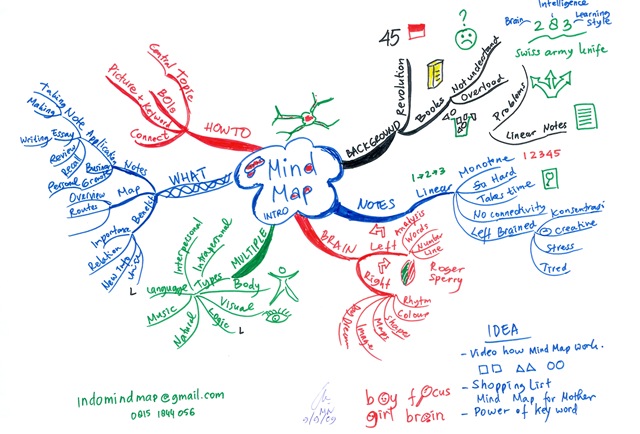 Intelligence
Brain
2 8 3
Learning
Style
Swiss army knife
45
?
Revolution
Books
Not understand
Overload
Problems
Linear Notes
BACKGROUND
Central Topic
Picture + Keyword
BOIs
Connect
HOW TO
Taking Note
Making
Writing Essay
Review
Recall
Application
Business
Personal Growth
Notes
Map
Overview
Routes
Benefit
Importance
Relation
New Info
WHAT
Mind
Map
INTRO
NOTES
Linear
1→2→3
Monotone
12345
So Hard
Takes time
No connectivity
Left Brained
Konsentrasi
Creative
Stress
Tired
BRAIN
Left
Analysis
Words
Number
Line
Right
Roger
Sperry
Rhytm
Colour
Shapes
Maps
Image
Day Dream
MULTIPLE
Types
Interpersonal
Intrapersonal
Language
Music
Natural
Logic
Visual
Body
L
L
IDEA
- Video how Mind Map work.
- Shopping List
Mind Map for Mother
- Power of keyword
indomindmap@gmail.com
0815 1844 056
MN
boy focus
girl brain